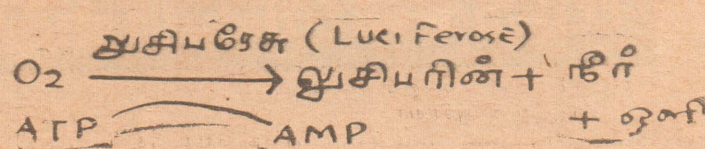 லுசிபரேசு (Luci Ferose)
O2 ⟶ லுசிபரின் + நீர்
ATP AMP + ஒளி